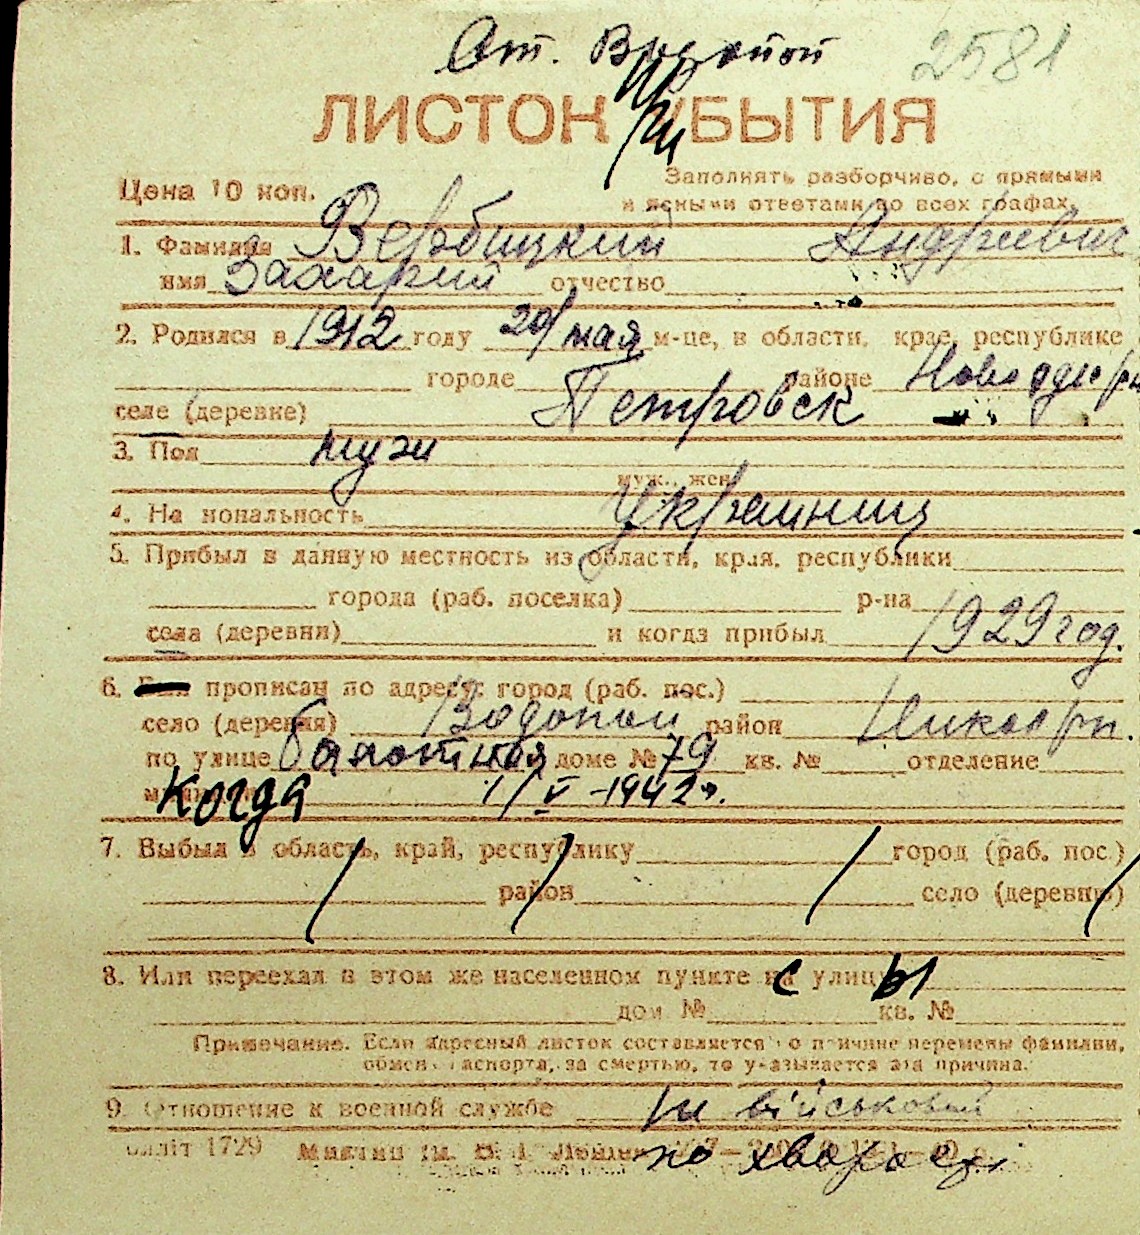 Ст. 2581
ЛИСТОК УБЫТИЯ
Цена 10 коп. Заполнять разборчиво, с прямыми
и ясными ответами во всех графах.
1. Фамилия Вербицкий Андриевич
имя Захарий отчество
2. Родился в 1912 году 20/мая м-це, в области, крае, республике
городе районе
селе (деревне) Петровск
3. Пол муж
муж., жен.
4. Национальность Украинец
5. Прибыл в данную местность из области, края, республики
города (раб. поселка) р-на
села (деревни) и когда прибыл 1929 год.
6. прописан по адресу: город (раб. пос.)
село (деревня) Водопой район
по улице Балотная доме № 79 кв. № отделение
Когда 1/V-1942 г.
7. Выбыл в область, край, республику город (раб. пос.)
район село (деревню)
8. Или переехал в этом же населенном пункте с улицы
дом № кв. №
Примечание. Если адресный листок составляется по причине перемены фамилии,
обмена паспорта, за смертью, то указывается эта причина.
9. Отношение к военной службе військовий
1729
по хворості